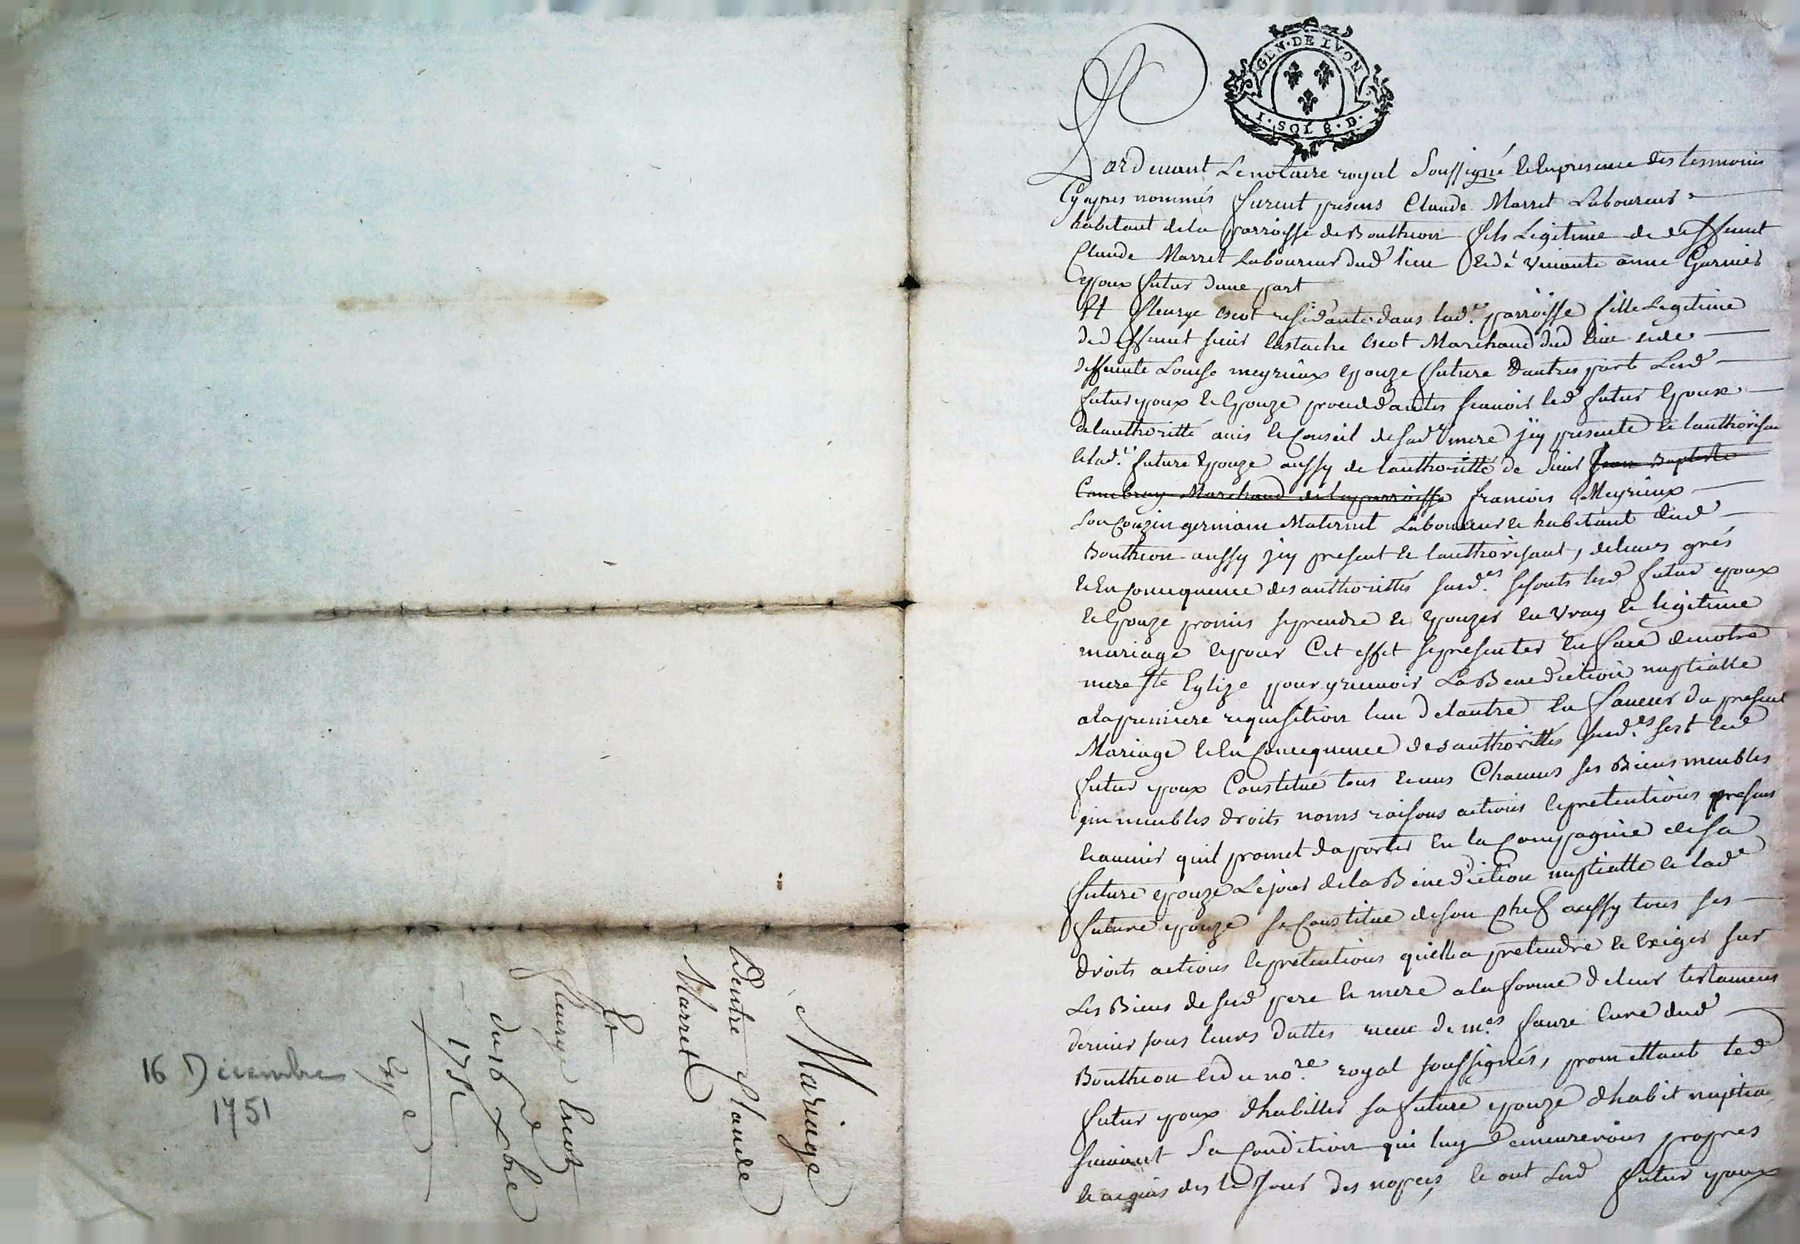 GEN·DE LYON
I·SOL 8·D·
Pardevant Le notaire royal Soussigné & en presence des tesmoins
Cy apres nommés furent presens Claude Marret Laboureur
habitant de la parroisse de Bouthion fils Legitime de deffunt
Claude Marret Laboureur dud lieu & de vivante anne Garnier
Epoux futur dune part
Et fleurye résidante dans lad.e parroisse fille Legitime
de deffunt sieur Eustache Marchand dud lieu & de
deffunte Louise meyrieux Epouze future dautres part Lesd
futur epoux & Epouze procedantes scavoir led futur Epoux
de lauthoritté avis & Conseil de sad mere jcy presente & lauthorisan
& lad.e future Epouze aussy de lauthoritté de Sieur Jean Baptiste
Marchand de la parroisse francois Meyrieux
son Couzin germain Maternel Laboureur & habitant dud
Bouthion aussy jcy present & lauthorisant, de leurs grés
& En Consequence des authorittés susd.es se sonts lesd futur epoux
& Epouze promis se prendre & Epouzer En vray & legitime
mariage & pour Cet effet se presenter En face de notre
mere Ste Eglize pour y recevoir La Benediction nuptialle
a la premiere requisition lun de lautre En faveur du present
Mariage & En Consequence des authorittés susd.es sest led
futur epoux Constitué tous & uns Chacuns ses Biens meubles
jmmeubles droits noms raisons actions & pretentions presens
& avenir quil promet daporter En la Compagnie de sa
future epouze Le jour de la Benediction nuptialle & lad.e
future epouze se Constitue de son Chef aussy tous ses
droits actions & pretentions quelle a pretendre & Exiger sur
Les Biens de sesd pere & mere a la forme de leur testamens
dernier sous leurs dattes receu de m.es faure Curé dud
Bouthion & du no.re royal soussignés, promettant led
futur epoux dhabiller sa future epouze dhabit nuptial
suivant Sa Condition qui luy demeureronts propres
& acquis des le Jour des nopces, & ont Lesd futur epoux
Mariage
Dentre Claude
Marret
Et
fleurye
du 16 Xbre
1751
Expe
16 Décembre
1751